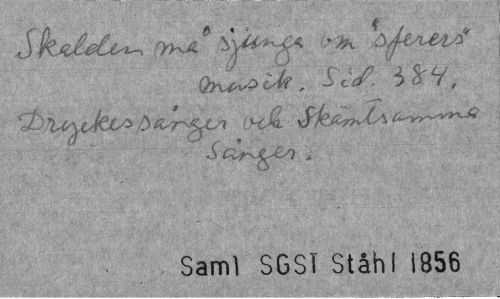 Skalden må sjunga om "sferers"
musik. Sid. 384.
Dryckessånger och Skämtsamma
Sånger.
Saml SGST Ståhl 1856